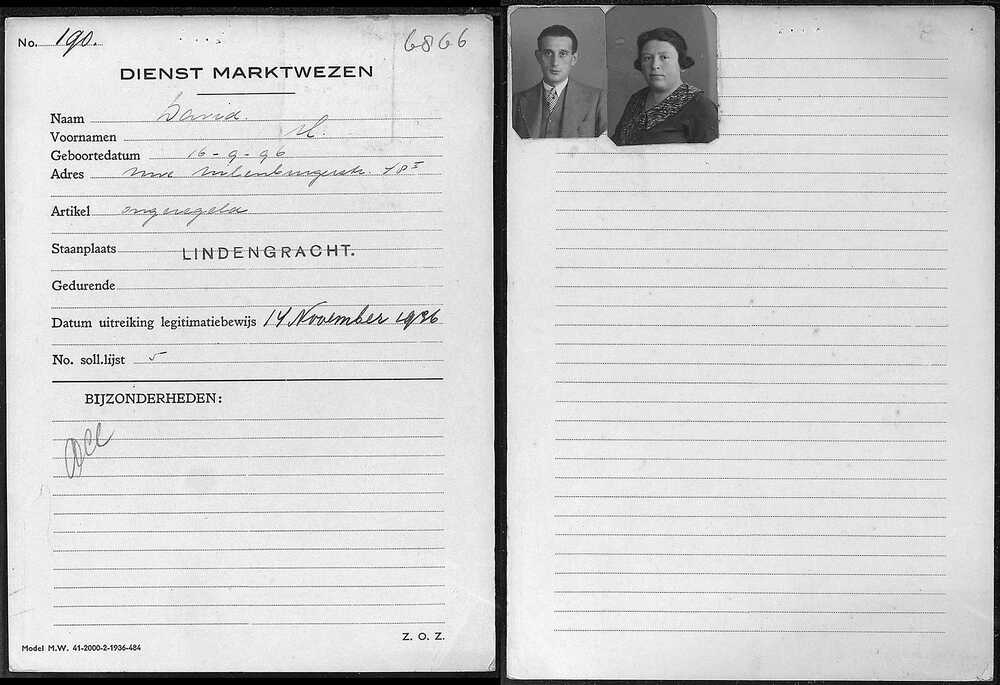 No. 190.
6866
DIENST MARKTWEZEN
Naam David.
Voornamen M.
Geboortedatum 16-9-96
Adres 18 I
Artikel ongeregeld
Staanplaats LINDENGRACHT.
Gedurende
Datum uitreiking legitimatiebewijs 14 November 1936
No. soll.lijst 5
BIJZONDERHEDEN:
Z. O. Z.
Model M.W. 41-2000-2-1936-484